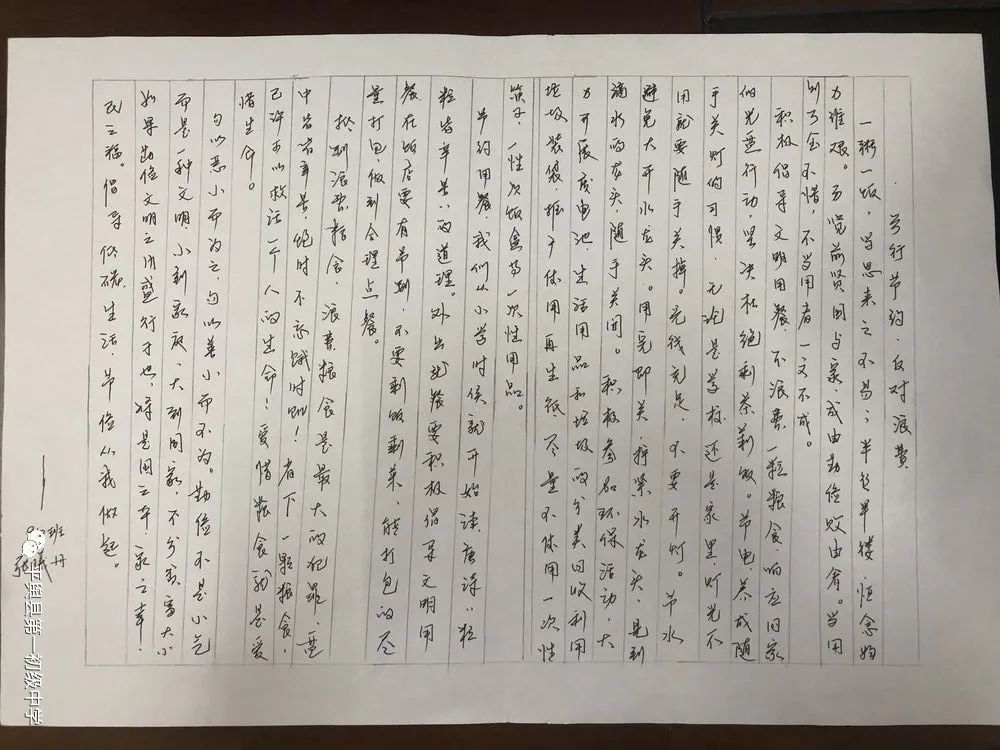 厉行节约,反对浪费
一粥一饭,当思来之不易;半丝半缕,恒念物
力维艰。历览前贤国与家,成由勤俭败由奢。当用
则万金不惜,不当用者一文不成。
积极倡导文明用餐,不浪费一粒粮食,响应国家
光盘行动,坚决杜绝剩茶剩饭。节电养成随
手关灯的习惯,无论是学校还是家里,灯光不
用就要随手关掉。光线充足,不要开灯。节水
避免大开水龙头。用完即关,拧紧水龙头,见到
滴水的龙头,随手关闭。积极参加环保活动,大
力开展废电池,生活用品和垃圾的分类回收利用
垃圾装袋,推广使用再生纸,尽量不使用一次性
筷子,一性次饭盒等一次性用品。
节约用餐我们从小学时侯就开始读唐诗“粒
粒皆辛苦”的道理。外出就餐要积极倡导文明用
餐。在饭店要有节制,不要剩饭剩菜,能打包的尽
量打包,做到合理点餐。
拒制浪费粮食,浪费粮食是最大的犯罪,盘
中皆有辛苦,饱时不忘饿时饥!省下一颗粮食,
已许可以救活一个人的生命!爱惜粮食就是爱
惜生命。
勿以恶小而为之,勿以善小而不为。勤俭不是小气
而是一种文明,小到家庭,大到国家,不分贫富大小
如果勤俭文明之风盛行于世,将是国之幸,家之幸,
民之福。倡导低碳生活,节俭从我做起。
班
张 丹
平舆县第一初级中学